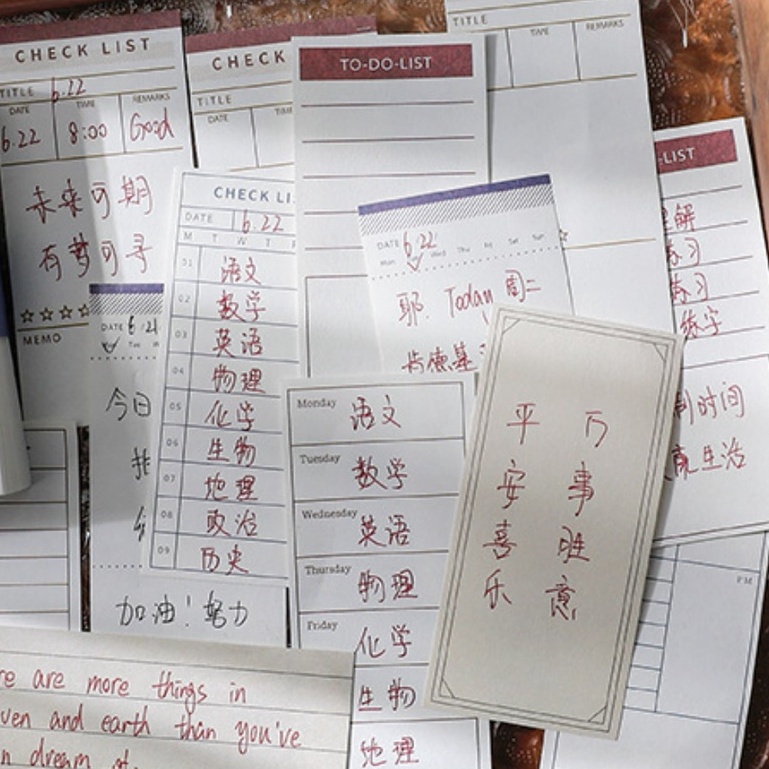 CHECK LIST
TITLE 6.22
DATE TIME REMARKS
6.22 8:00 Good
未来可期
有梦可寻
MEMO
CHECK
TITLE
DATE
TO-DO-LIST
TITLE
TIME REMARKS
LIST
解
练习
练习
练字
时间
生活
CHECK LI
DATE 6.22
M T W T F
01 语文
02 数学
03 英语
04 物理
05 化学
06 生物
07 地理
08 政治
09 历史
DATE 6.22
Mon Wed Thu Fri Sat Sun
耶. Today 周二
肯德基
DATE 6.21
Tue
今日
加油!努力
Monday 语文
Tuesday 数学
Wednesday 英语
Thursday 物理
Friday 化学
生物
地理
万事胜意
平安喜乐
PM
re are more things in
ven and earth than you've
n dream of.